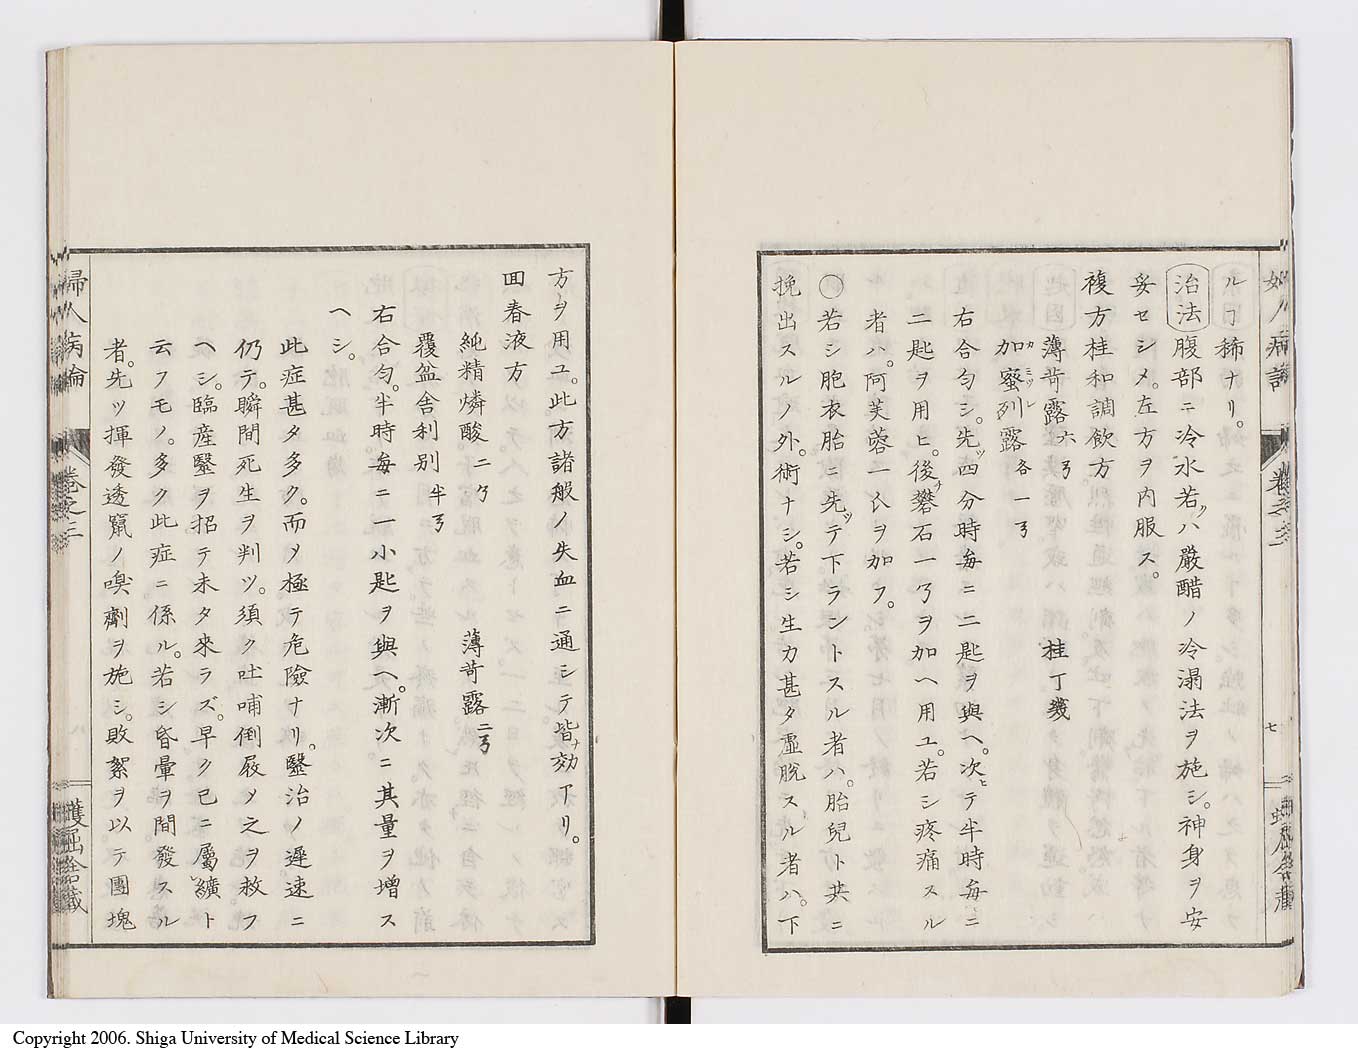 ルヿ稀ナリ。
治法 腹部ニ冷水若クハ嚴醋ノ冷溻法ヲ施シ。神身ヲ安
妥セシメ。左方ヲ内服ス。
複方桂和調飲方
薄荷露六ヲ 桂丁幾
加蜜列露各一ヲ
カミツレ
右合匀シ。先ツ四分時每ニ二匙ヲ與ヘ。次ヒテ半時每ニ
二匙ヲ用ヒ。後チ礬石一ヲ加ヘ用ユ。若シ疼痛スル
者ハ。阿芙蓉一ヲ加フ。
〇若シ胞衣胎ニ先ツテ下ラントスル者ハ。胎兒ト共ニ
挽出スルノ外。術ナシ。若シ生力甚タ虛脫スル者ハ。下
七
方ヲ用ユ。此方諸般ノ失血ニ通シテ皆ナ効アリ。
回春液方
純精燐酸二 薄荷露二
覆盆舍利別半
右合匀。半時每ニ一小匙ヲ與ヘ漸次ニ其量ヲ增ス
ヘシ。
此症甚タ多ク。而メ極テ危險ナリ。醫治ノ遲速ニ
仍テ。瞬間死生ヲ判ツ。須ク吐哺倒屐メ之ヲ救フ
ヘシ。臨産醫ヲ招テ未タ來ラズ。早ク已ニ屬纊ト
云フモノ。多ク此症ニ係ル。若シ昏暈ヲ間發スル
者。先ツ揮發透竄ノ嗅劑ヲ施シ。敗絮ヲ以テ團塊
婦人病論 卷之三
蠖屈舍藏
Copyright 2006. Shiga University of Medical Science Library